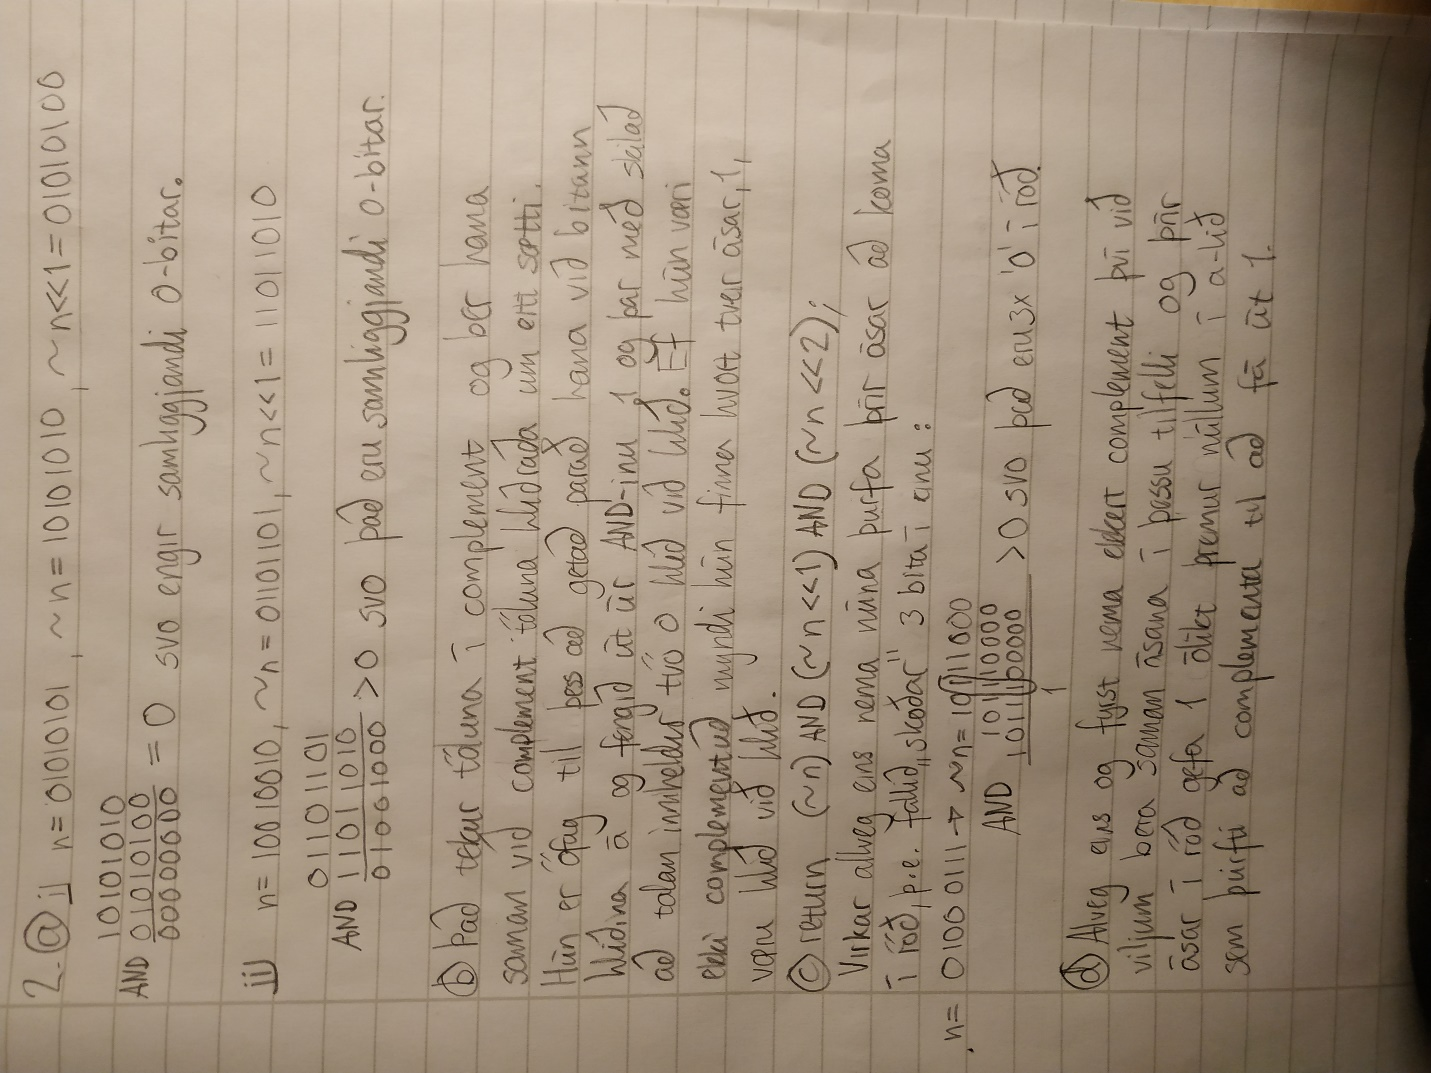 2. (a) i) n = 01010101, ~n = 10101010, ~n<<1 = 01010100
10101010
AND 01010100
00000000 = 0 svo engir samliggjandi 0-bitar.
ii) n = 10010010, ~n = 01101101, ~n<<1 = 11011010
01101101
AND 11011010
01001000 > 0 svo það eru samliggjandi 0-bitar.
(b) Það tekur töluna í complement og ber hana
saman við complement töluna hliðraða um eitt sæti.
Hún er öfug til þess að getað parað hana við bitann
hliðina á og fengið út úr AND-inu 1 og þar með skilað
að talan innheldur tvö 0 hlið við hlið. Ef hún væri
ekki complementuð myndi hún finna hvort tveir ásar, 1,
væru hlið við hlið.
(c) return (~n) AND (~n<<1) AND (~n<<2);
Virkar allveg eins nema núna þurfa þrír ásar að koma
í röð, þ.e. fallið „skoðar" 3 bita í einu:
n = 01000111 → ~n = 10111000
10110000
AND 10100000 > 0 svo það eru 3x '0' í röð.
1
(d) Alveg eins og fyrst nema ekkert complement því við
viljum bera saman ásana í þessu tilfelli og þrír
ásar í röð gefa 1 ólíkt þremur núllum í a-lið
sem þurfti að complementa til að fá út 1.